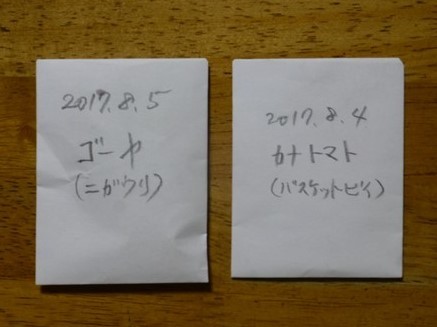 2017.8.5
ゴーヤ
(ニガウリ)
2017.8.4
カナトマト
(バスケットビィ)